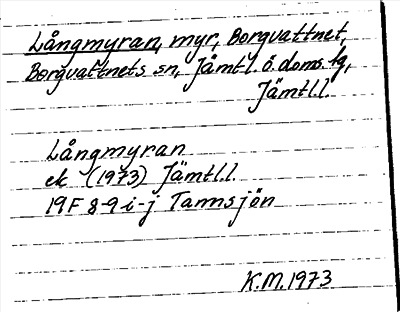 Långmyran, myr, Borgvattnet,
Borgvattnets sn, Jämtl. ö. doms. tg,
Jämtl.l.
Långmyran
ek (1973) Jämtl.l.
19F 8-9 i-j Tannsjön
K.M. 1973